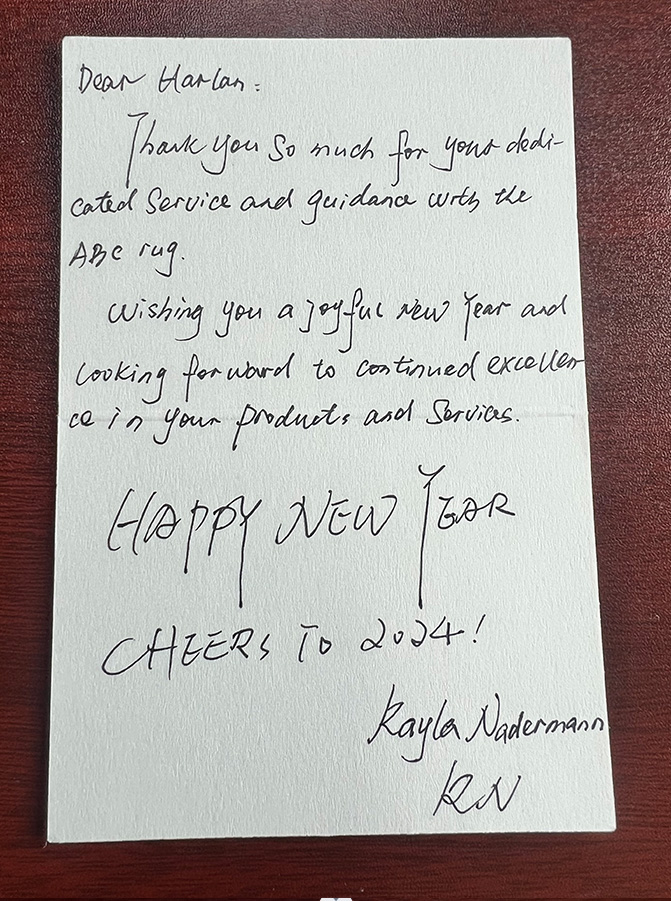 Dear Harlan:
Thank you so much for your dedi-
cated Service and guidance with the
ABC rug.
Wishing you a joyful New Year and
looking forward to continued excellen
ce in your products and Services.
HAPPY NEW YEAR
CHEERS TO 2024!
Kayla Nadermann
KN